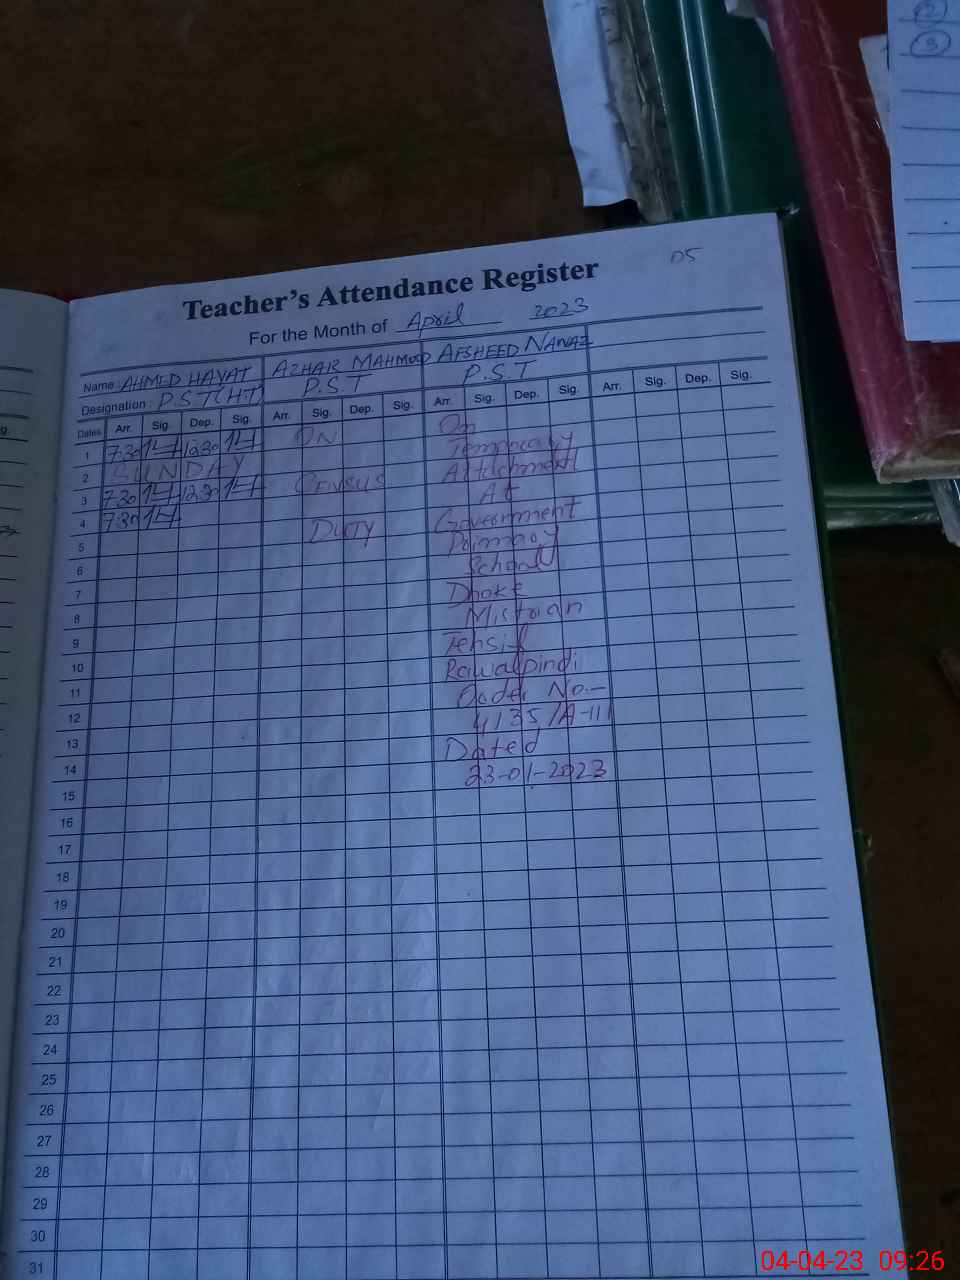 2
3
05
Teacher's Attendance Register
For the Month of April 2023
Name AHMED HAYAT AZHAR MAHMOOD AFSHEED NAWAZ
Designation P.S.T(HT) P.S.T P.S.T
Dates Arr. Sig. Dep. Sig. Arr. Sig. Dep. Sig. Arr. Sig. Dep. Sig. Arr. Sig. Dep. Sig.
1 7:30 12:30 ON On
Temporary
2 SUNDAY Attachment
3 7:30 12:30 CENSUS At
4 7:30 DUTY Government
5 Primary
6 School
7 Dhoke
8 Mistrian
9 Tehsil
10 Rawalpindi
11 Order No.-
12 4135/A-III
13 Dated
14 23-01-2023
15
16
17
18
19
20
21
22
23
24
25
26
27
28
29
30
31
04-04-23 09:26